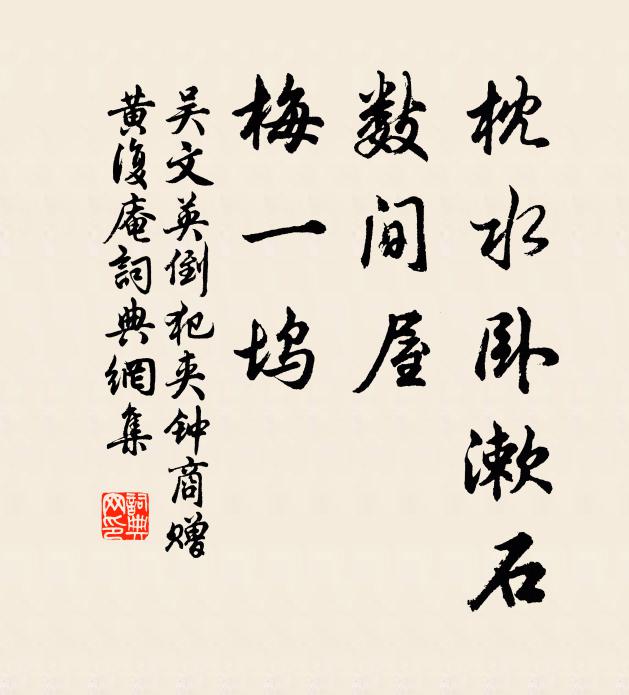 枕水卧漱石
数间屋
梅一坞
吴文英倒犯夹钟商赠
黄復庵詞典網集
詞典网印